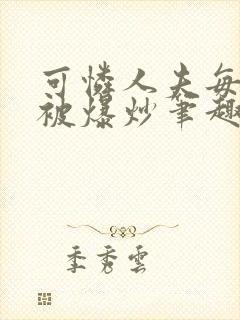 可憐人夫每
被爆炒筆趣
季秀雲